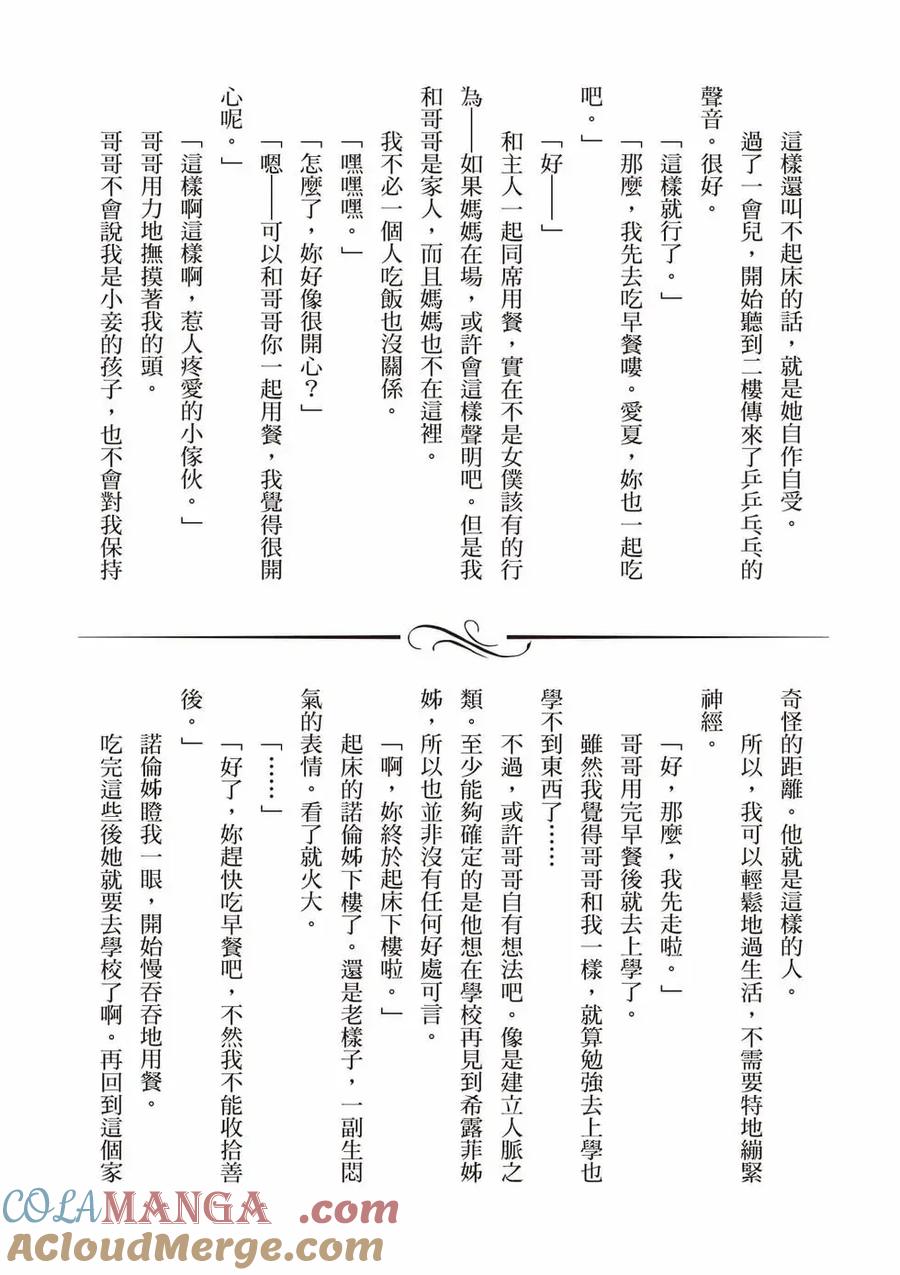 這樣還叫不起床的話，就是她自作自受。
過了一會兒，開始聽到二樓傳來了乒乒乓乓的
聲音。很好。
「這樣就行了。」
「那麼，我先去吃早餐嘍。愛夏，妳也一起吃
吧。」
「好──」
和主人一起同席用餐，實在不是女僕該有的行
為──如果媽媽在場，或許會這樣聲明吧。但是我
和哥哥是家人，而且媽媽也不在這裡。
我不必一個人吃飯也沒關係。
「嘿嘿嘿。」
「怎麼了，妳好像很開心？」
「嗯──可以和哥哥你一起用餐，我覺得很開
心呢。」
「這樣啊這樣啊，惹人疼愛的小傢伙。」
哥哥用力地撫摸著我的頭。
哥哥不會說我是小妾的孩子，也不會對我保持
奇怪的距離。他就是這樣的人。
所以，我可以輕鬆地過生活，不需要特地繃緊
神經。
「好，那麼，我先走啦。」
哥哥用完早餐後就去上學了。
雖然我覺得哥哥和我一樣，就算勉強去上學也
學不到東西了……
不過，或許哥哥自有想法吧。像是建立人脈之
類。至少能夠確定的是他想在學校再見到希露菲姊
姊，所以也並非沒有任何好處可言。
「啊，妳終於起床下樓啦。」
起床的諾倫姊下樓了。還是老樣子，一副生悶
氣的表情。看了就火大。
「……」
「好了，妳趕快吃早餐吧，不然我不能收拾善
後。」
諾倫姊瞪我一眼，開始慢吞吞地用餐。
吃完這些後她就要去學校了啊。再回到這個家
COLAMANGA.com
ACloudMerge.com